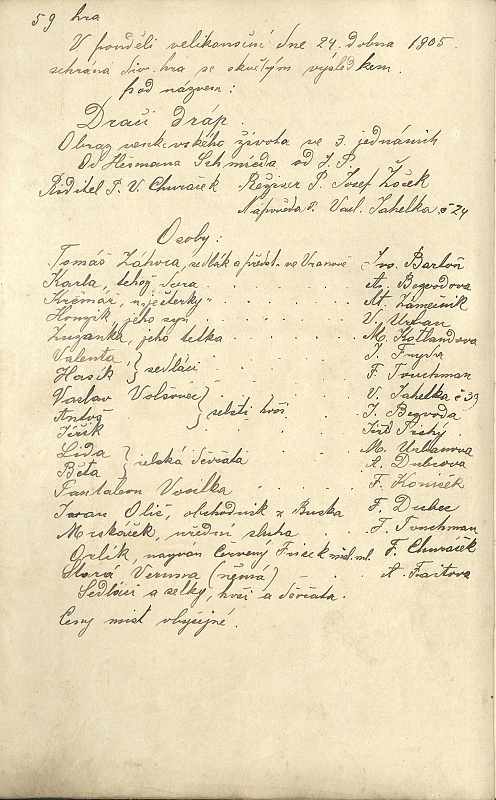 59 hra
V pondělí velikonoční dne 24. dubna 1905.
sehrána div. hra se skvělým výsledkem.
pod názvem:
Dračí dráp.
Obraz venkovského života ve 3. jednáních
Od Heřmana Schmieda od J. P.
Ředitel P. V. Churáček Režiser P. Josef Žáček
Nápověda P. Vacl. Jahelka č 24
Osoby:
Tomáš Závora, sedlák a předst. ve Vranově Ivo. Bartoň
Karla, jehož dcera An. Begvodova
Krčmář, u „ještěrky“ At. Zámečník
Honzík, jeho syn V. Urban
Zuzanka, jeho tetka M. Kotlandova
Valenta J. Fryda
Hasík } sedláci F. Touchman
Vaclav Volšovec V. Jahelka č 39
Antoš } selští hoši J. Begvoda
Jiřík Jos. Pěchý
Lida M. Urbanova
Běta } selská děvčata A. Dubcova
Pantaleon Vosilka F. Koníček
Ivan Olič, obchodník z Ruska F. Dubec
Mrskáček, úřední sluha F. Touchman
Orlík, nazvan Červený Fricek F. Churáček
Stará Verunna (němá) A. Fraitova
Sedláci a selky, hoši a děvčata.
Ceny míst obyčejné.